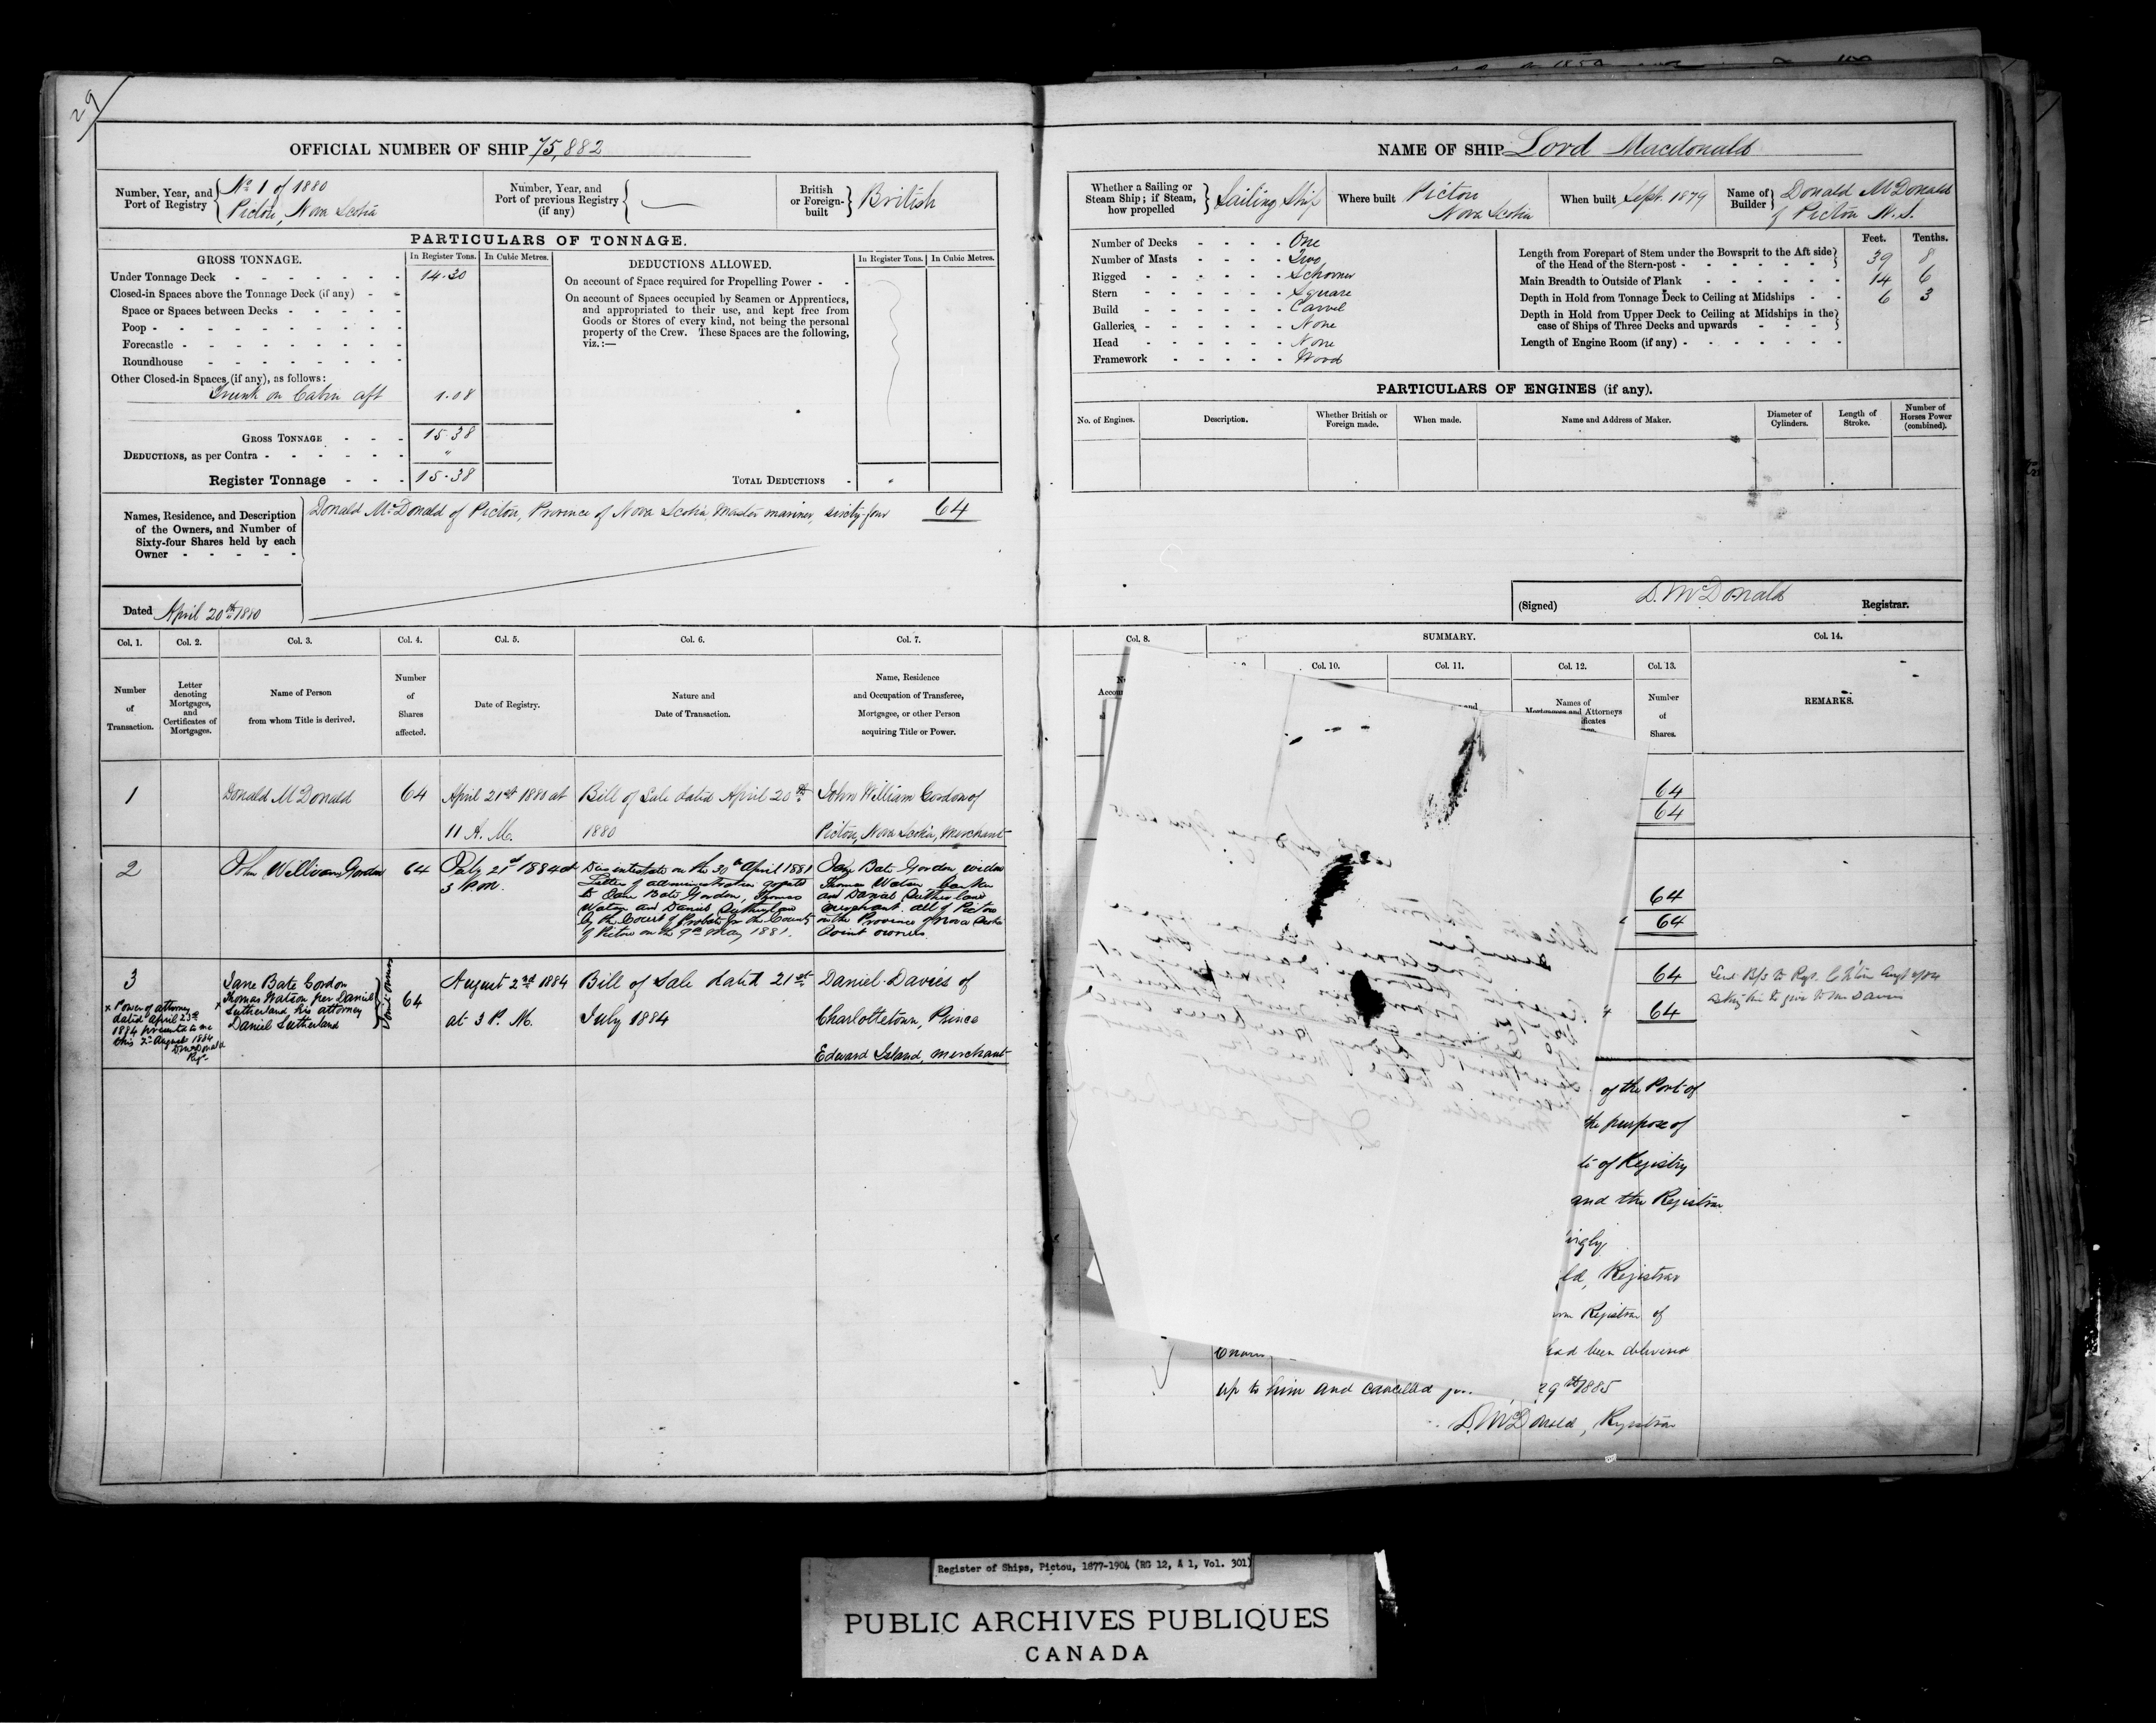 29
OFFICIAL NUMBER OF SHIP 75,882
Number, Year, and Port of Registry
No 1 of 1880
Pictou, Nova Scotia
Number, Year, and Port of previous Registry (if any)
British or Foreign-built
British
PARTICULARS OF TONNAGE.
GROSS TONNAGE.
In Register Tons.
In Cubic Metres.
Under Tonnage Deck 14.30
Closed-in Spaces above the Tonnage Deck (if any)
Space or Spaces between Decks
Poop
Forecastle
Roundhouse
Other Closed-in Spaces (if any), as follows:
Trunk on Cabin aft 1.08
GROSS TONNAGE 15.38
DEDUCTIONS, as per Contra "
Register Tonnage 15.38
DEDUCTIONS ALLOWED.
In Register Tons.
In Cubic Metres.
On account of Space required for Propelling Power
On account of Spaces occupied by Seamen or Apprentices,
and appropriated to their use, and kept free from
Goods or Stores of every kind, not being the personal
property of the Crew. These Spaces are the following,
viz.:—
TOTAL DEDUCTIONS
Names, Residence, and Description
of the Owners, and Number of
Sixty-four Shares held by each
Owner
Donald McDonald of Pictou, Province of Nova Scotia, Master mariner, sixty-four 64
Dated April 20th 1880
Col. 1.
Col. 2.
Col. 3.
Col. 4.
Col. 5.
Col. 6.
Col. 7.
Number of Transaction.
Letter denoting Mortgages, and Certificates of Mortgages.
Name of Person from whom Title is derived.
Number of Shares affected.
Date of Registry.
Nature and Date of Transaction.
Name, Residence and Occupation of Transferee, Mortgagee, or other Person acquiring Title or Power.
1
Donald McDonald
64
April 21st 1880 at
11 A. M.
Bill of Sale dated April 20th
1880
John William Gordon of
Pictou, Nova Scotia, Merchant
2
John William Gordon
64
July 21st 1884 at
3 P.M.
Died intestate on the 30th April 1881
Letters of administration granted
to Jane Bate Gordon, Thomas
Watson and Daniel Sutherland
by the Court of Probate for the County
of Pictou on the 9th May 1881.
Jane Bate Gordon widow
Thomas Watson banker
and Daniel Sutherland
merchant. all of Pictou
in the Province of Nova Scotia
Joint owners
3
x Power of attorney
dated April 23rd
1884 presented to me
this 2nd August 1884
D McDonald
Regr
Jane Bate Gordon
x Thomas Watson per Daniel
Sutherland his attorney
Daniel Sutherland
Joint owners
64
August 2nd 1884
at 3 P. M.
Bill of Sale dated 21st
July 1884
Daniel Davies of
Charlottetown, Prince
Edward Island, merchant
NAME OF SHIP Lord Macdonald
Whether a Sailing or Steam Ship; if Steam, how propelled
Sailing Ship
Where built
Pictou
Nova Scotia
When built Sept. 1879
Name of Builder
Donald McDonald
of Pictou N. S.
Number of Decks One
Number of Masts Two
Rigged Schooner
Stern Square
Build Carvel
Galleries None
Head None
Framework Wood
Feet. Tenths.
Length from Forepart of Stem under the Bowsprit to the Aft side
of the Head of the Stern-post 39 8
Main Breadth to Outside of Plank 14 6
Depth in Hold from Tonnage Deck to Ceiling at Midships 6 3
Depth in Hold from Upper Deck to Ceiling at Midships in the
case of Ships of Three Decks and upwards
Length of Engine Room (if any)
PARTICULARS OF ENGINES (if any).
No. of Engines.
Description.
Whether British or Foreign made.
When made.
Name and Address of Maker.
Diameter of Cylinders.
Length of Stroke.
Number of Horses Power (combined).
(Signed) D. McDonald Registrar.
Col. 8.
SUMMARY.
Col. 10.
Col. 11.
Col. 12.
Col. 13.
Col. 14.
Names of
Attorneys
Number of Shares.
REMARKS.
64
64
64
64
64
64
of the Port of
the purpose of
of Registry
and the Registrar
Registrar
Registrar of
had been delivered
up to him and cancelled
29th 1885
D. McDonald, Registrar
Register of Ships, Pictou, 1877-1904 (RG 12, A 1, Vol. 301)
PUBLIC ARCHIVES PUBLIQUES
CANADA